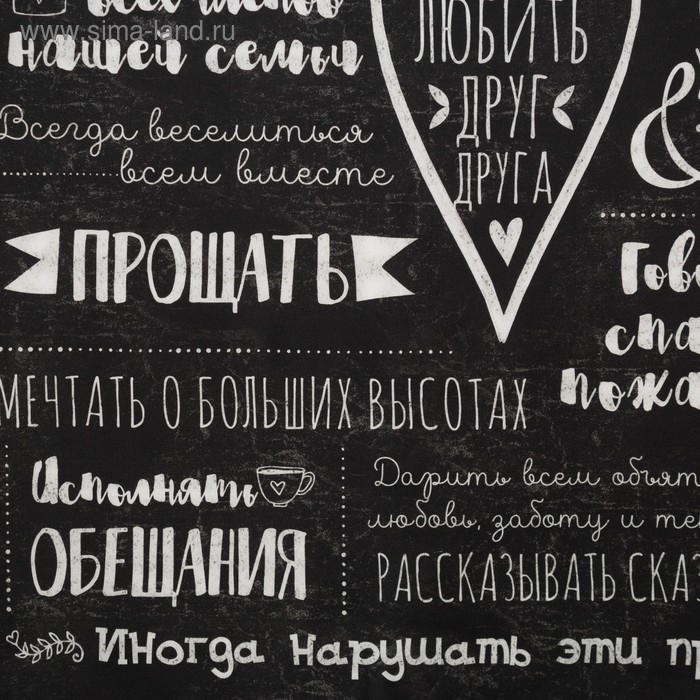 www.sima-land.ru
всех членов
нашей семьи
Всегда веселиться
всем вместе
ПРОЩАТЬ
ЛЮБИТЬ
ДРУГ
ДРУГА
&
МЕЧТАТЬ О БОЛЬШИХ ВЫСОТАХ
Исполнять
ОБЕЩАНИЯ
Дарить всем объят
любовь, заботу и те
РАССКАЗЫВАТЬ СКАЗ
Гово
спа
пожа
Иногда нарушать эти пр